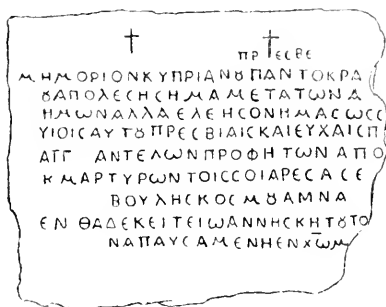 † †
ΠΡ ΕϹΒΕ
ΜΗΜΟΡΙΟΝΚΥΠΡΙΑΝȢΠΑΝΤΟΚΡΑ
ȢΑΠΟΛΕϹΗϹΗΜΑΜΕΤΑΤΩΝΑ
ΗΜΩΝΑΛΛΑΕΛΕΗϹΟΝΗΜΑϹΩϹϹ
ΥΙΟΙϹΑΥΤΟΥΠΡΕϹΒΙΑΙϹΚΑΙΕΥΧΑΙϹΠ
ΑΓΓ ΑΝΤΕΛΩΝΠΡΟΦΗΤΩΝΑΠΟ
ΚΜΑΡΤΥΡΩΝΤΟΙϹϹΟΙΑΡΕϹΑϹΕ
ΒΟΥΛΗϹΚΟϹΜȢΑΜΝΑ
ΕΝΘΑΔΕΚΕΙΤΕΙΩΑΝΝΗϹΚΗΤȢΤΟ
ΝΑΠΑΥϹΑΜΕΝΗΕΝΧ̅ΩΜ